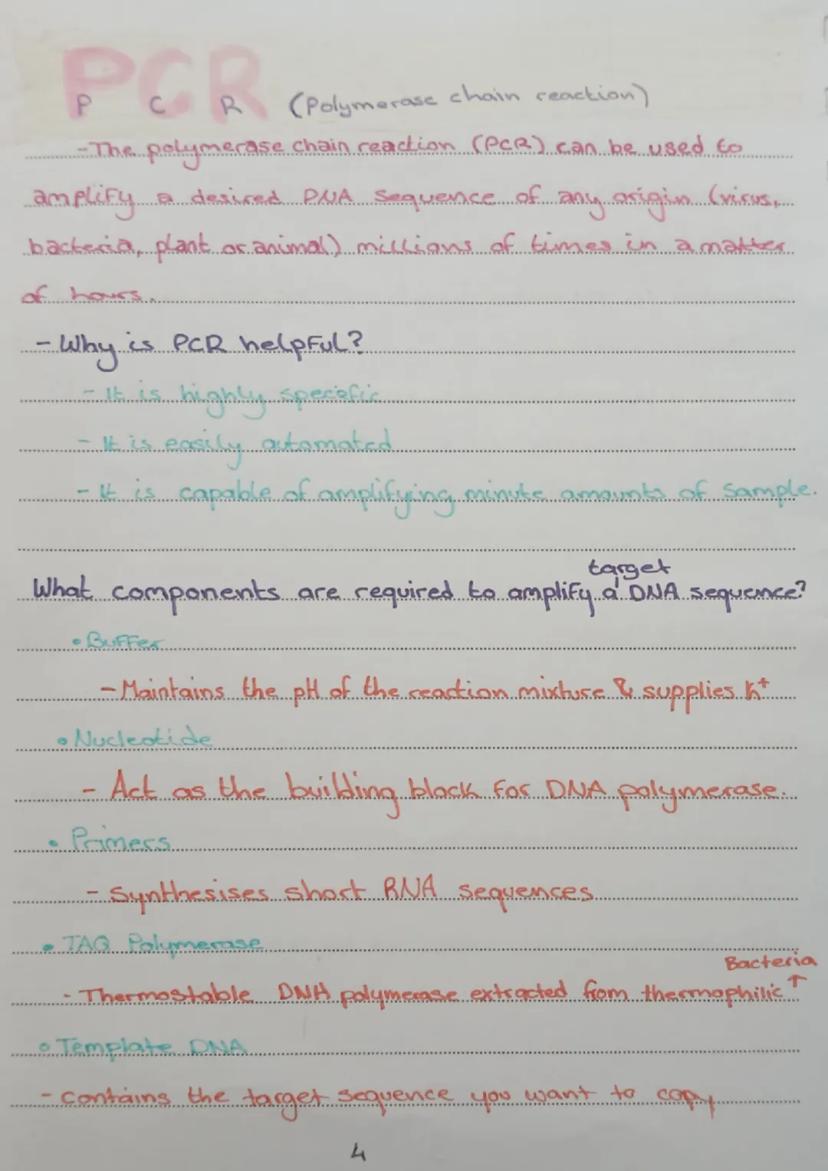 PCR
P C R (Polymerase chain reaction)
-The polymerase chain reaction (PCR) can be used to
amplify a desired DNA sequence of any origin (virus,
bacteria, plant or animal) millions of times in a matter
of hours.
- Why is PCR helpful?
- It is highly specific
- It is easily automated
- It is capable of amplifying minute amounts of sample.
target
What components are required to amplify a DNA sequence?
• Buffer
- Maintains the pH of the reaction mixture & supplies K+
• Nucleotide
- Act as the building block for DNA polymerase.
• Primers
- Synthesises short RNA sequences
• TAQ Polymerase
Bacteria
- Thermostable DNA polymerase extracted from thermophilic ↑
• Template DNA
- contains the target sequence you want to copy
4